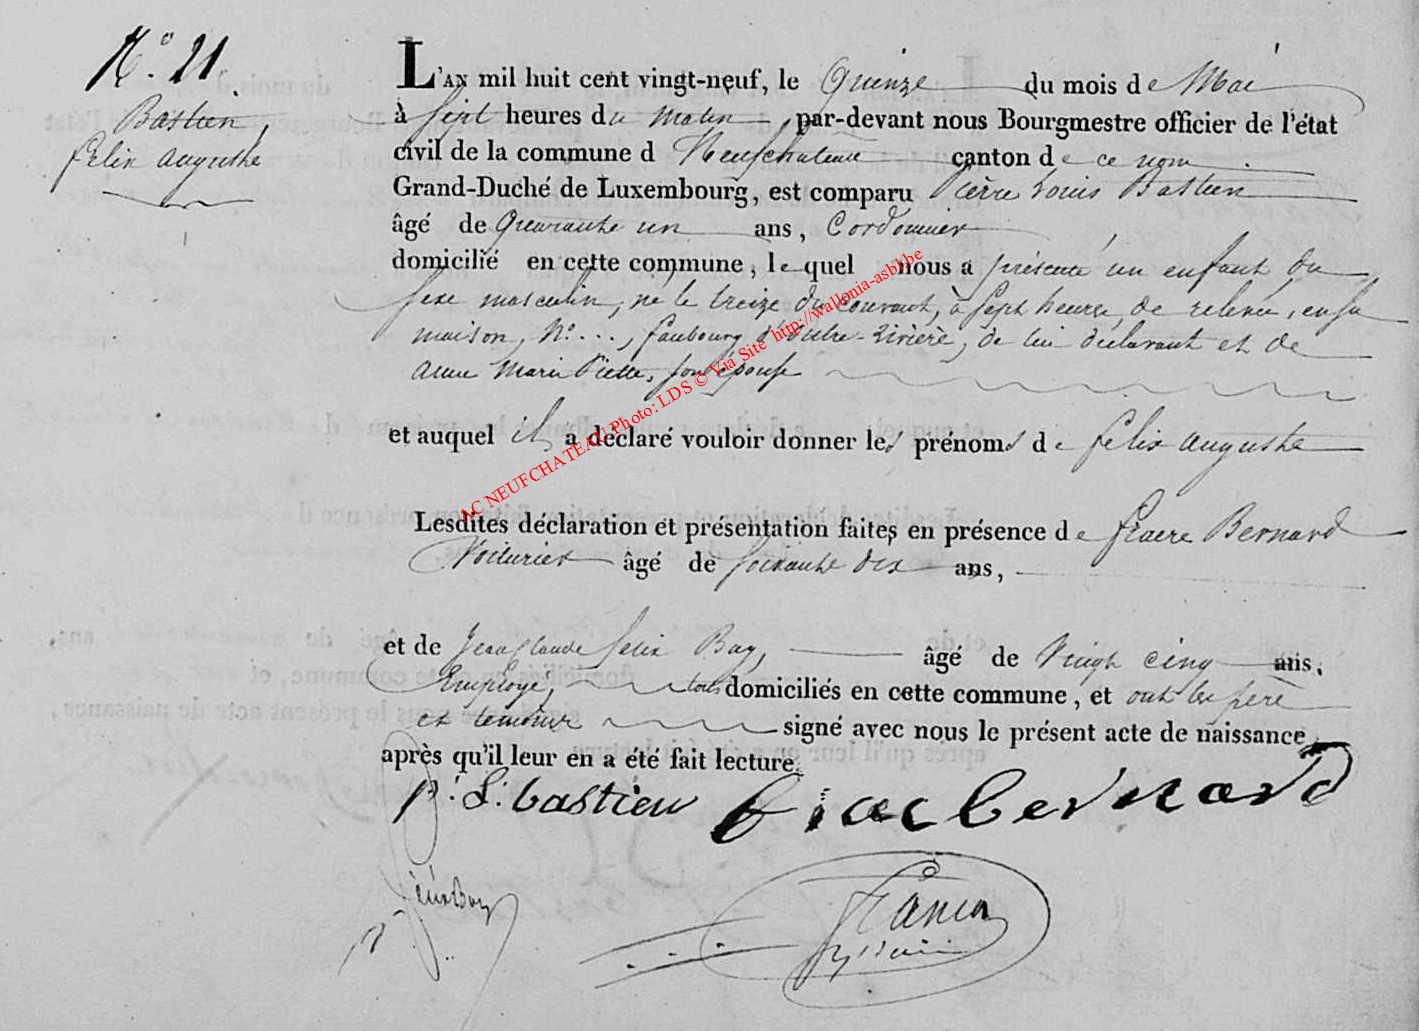 N° 21.
Bastien,
felix auguste
L'AN mil huit cent vingt-neuf, le Quinze du mois de Mai
à sept heures du matin, par-devant nous Bourgmestre officier de l'état
civil de la commune d Neufchateau canton de ce nom.
Grand-Duché de Luxembourg, est comparu Pierre Louis Bastien
âgé de Quarante un ans, Cordonnier
domicilié en cette commune, lequel nous a présenté un enfant du
sexe masculin, né le treize du courant, à sept heures de relevée, en sa
maison, N°..., faubourg d'outre-rivière, de lui déclarant et de
anne Marie Piette, son épouse
et auquel il a déclaré vouloir donner les prénoms de felix auguste
Lesdites déclaration et présentation faites en présence de fiacre Bernard
Voiturier âgé de soixante dix ans,
et de Jean Claude felix Bay, âgé de Vingt cinq ans,
Employé, tous domiciliés en cette commune, et ont les père
et temoins signé avec nous le présent acte de naissance
après qu'il leur en a été fait lecture.
p. L. bastien fiac bernard
AC NEUFCHATEAU Photo: LDS © Via Site http://wallonia-asbl.be